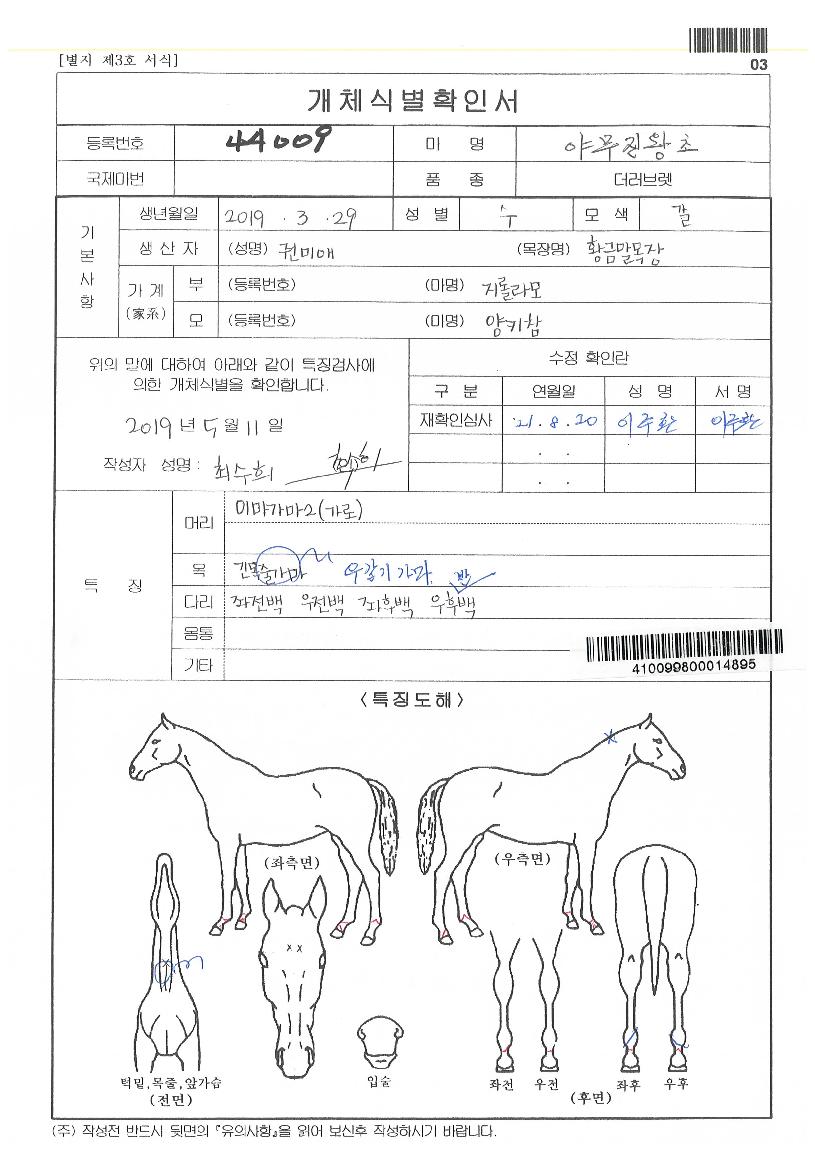 [별지 제3호 서식]
03
개체식별확인서
등록번호 44009 마 명 야무진왕초
국제마번 품 종 더러브렛
기본사항
생년월일 2019 . 3 . 29 성 별 수 모 색 갈
생 산 자 (성명) 권미애 (목장명) 황금말목장
가 계 (家系)
부 (등록번호) (마명) 지롤라모
모 (등록번호) (마명) 양키참
위의 말에 대하여 아래와 같이 특징검사에
의한 개체식별을 확인합니다.
2019 년 5 월 11 일
작성자 성명 : 최수희
수정 확인란
구 분 연월일 성 명 서 명
재확인심사 '21 . 8 . 20 이주환 이주환
. .
. .
특 징
머리 이마가마2(가로)
목 긴목줄가마 우갈기가마
다리 좌전백 우전백 좌후백 우후백
몸통
기타
410099800014895
<특징도해>
(좌측면)
(우측면)
x x
턱밑,목줄,앞가슴
(전면)
입술
좌전 우전 좌후 우후
(후면)
(주) 작성전 반드시 뒷면의 『유의사항』을 읽어 보신후 작성하시기 바랍니다.